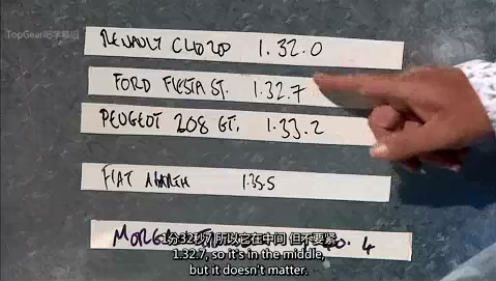 TopGear吧字幕组
RENAULT CLIO 200 1.32.0
FORD FIESTA ST. 1.32.7
PEUGEOT 208 GT. 1.33.2
FIAT ABARTH 1.35.5
1分32秒7 所以它在中间 但不要紧
1.32.7, so it's in the middle,
but it doesn't matter.